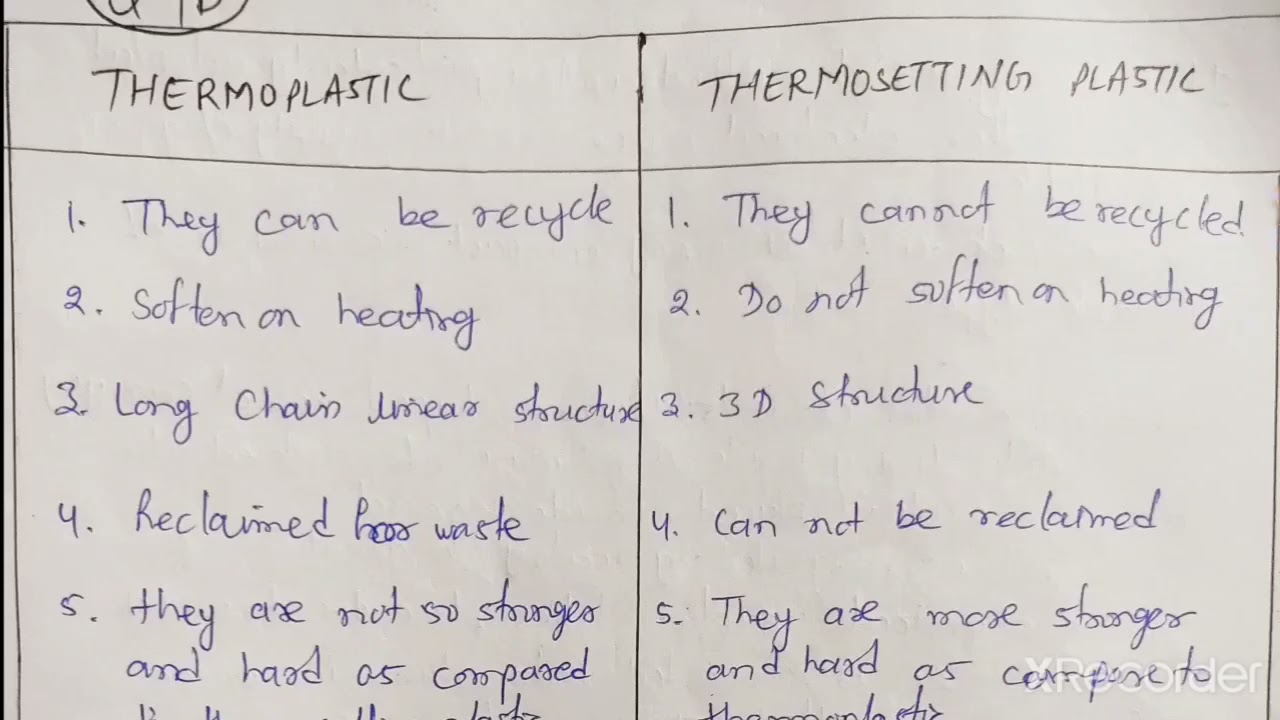 THERMOPLASTIC
THERMOSETTING PLASTIC
1. They can be recycle
2. Soften on heating
3. Long Chain linear structure
4. Reclaimed waste
5. they are not so stronger
and hard as compared
1. They cannot be recycled.
2. Do not soften on heating
3. 3D structure
4. can not be reclaimed
5. They are more stronger
and hard as compare to
thermoplastic
XRecorder